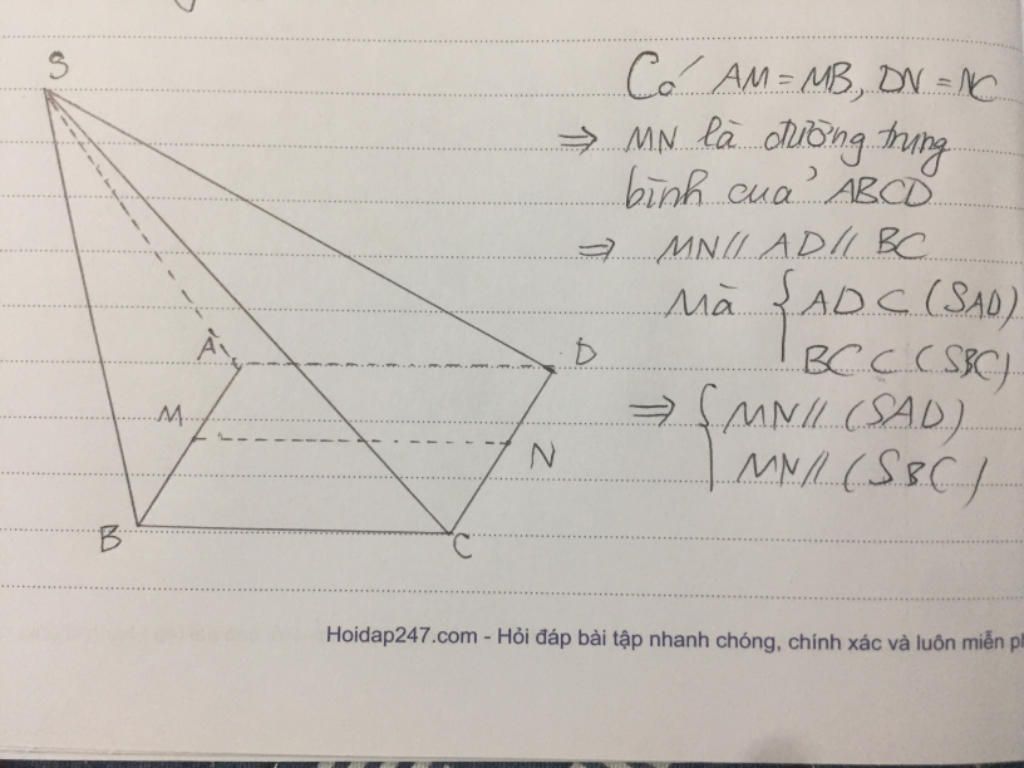 S
Có AM = MB, DN = NC
⇒ MN là đường trung
bình của ABCD
⇒ MN // AD // BC
Mà { AD ⊂ (SAD)
BC ⊂ (SBC)
⇒ { MN // (SAD)
MN // (SBC)
A
D
M
N
B
C
Hoidap247.com - Hỏi đáp bài tập nhanh chóng, chính xác và luôn miễn ph